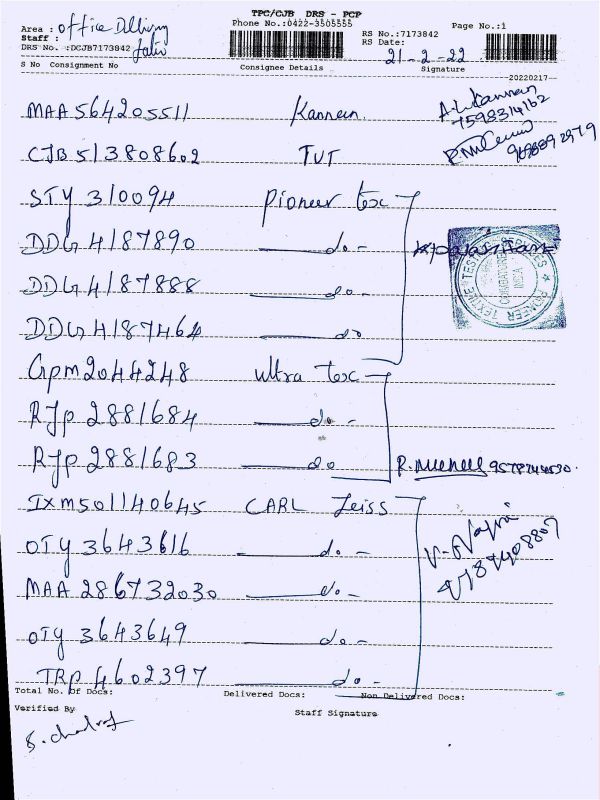 TPC/CJB DRS - PCP
Phone No.:0422-3505555
Area : office Delivery
Staff :
DRS No. :DCJB7173842
RS No.:7173842
RS Date:
21-2-22
Page No.:1
S No Consignment No Consignee Details Signature
20220217
MAA 564205511 Kannan.
CJB 513808602 TUT
STY 310094 Pioneer tex
DDG 4187890 do-
DDG 4187888 do-
DDG 4187464 do
GPM 2044248 ultra tex
RJP 2881684 do-
RJP 2881683 do
IXM501140645 CARL Zeiss
OTY 3643616 do-
MAA 286732030 do-
OTY 3643649 do-
TRP 4602397 do-
Total No. Of Docs: Delivered Docs: Non Delivered Docs:
Verified By
Staff Signature